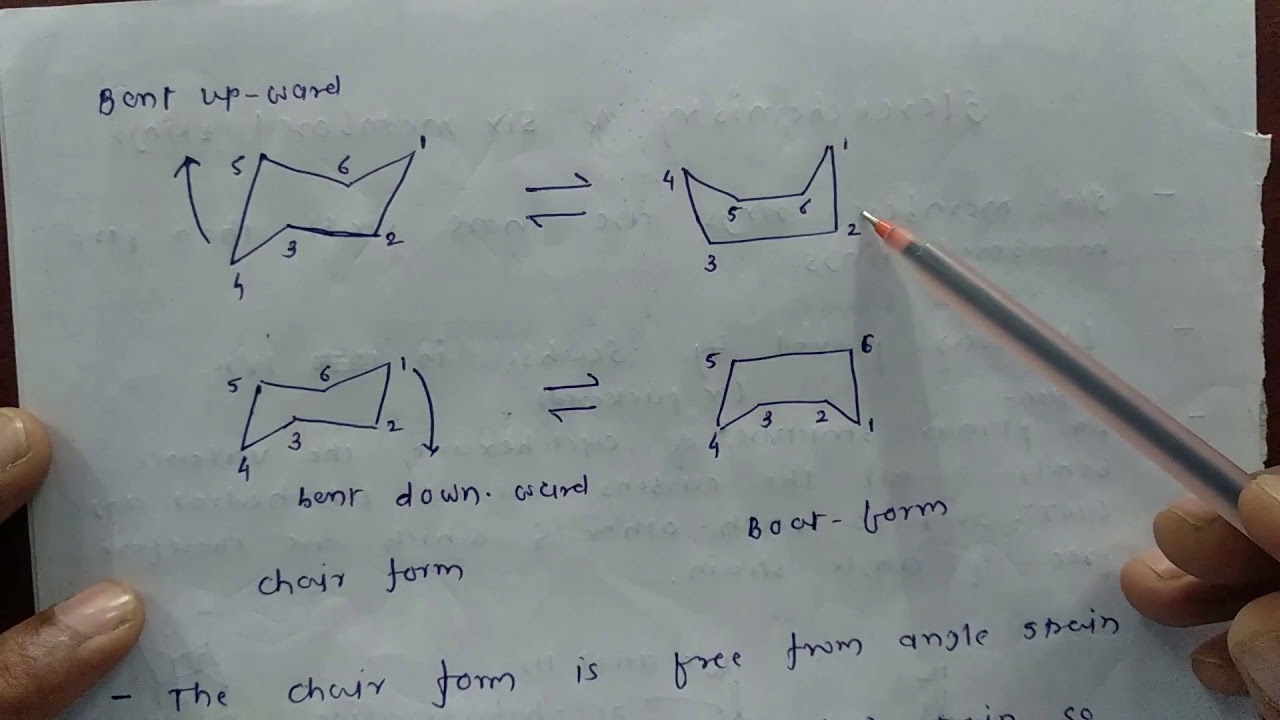 Bent up-ward
5 6 1
3 2
4
4 1
5 6
2
3
5 6 1
3 2
4
5 6
3 2 1
4
bent down.ward
Boat-form
chair form
- The chair form is free from angle strain
so